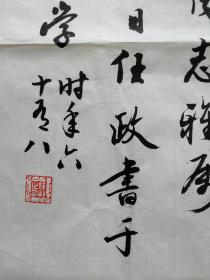 志雅属
日任政書于
学
时年六
十有八